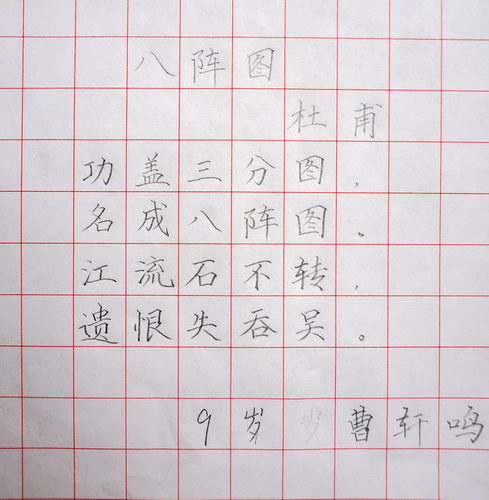 八阵图
杜甫
功盖三分图，
名成八阵图。
江流石不转，
遗恨失吞吴。
9岁 岁曹轩鸣